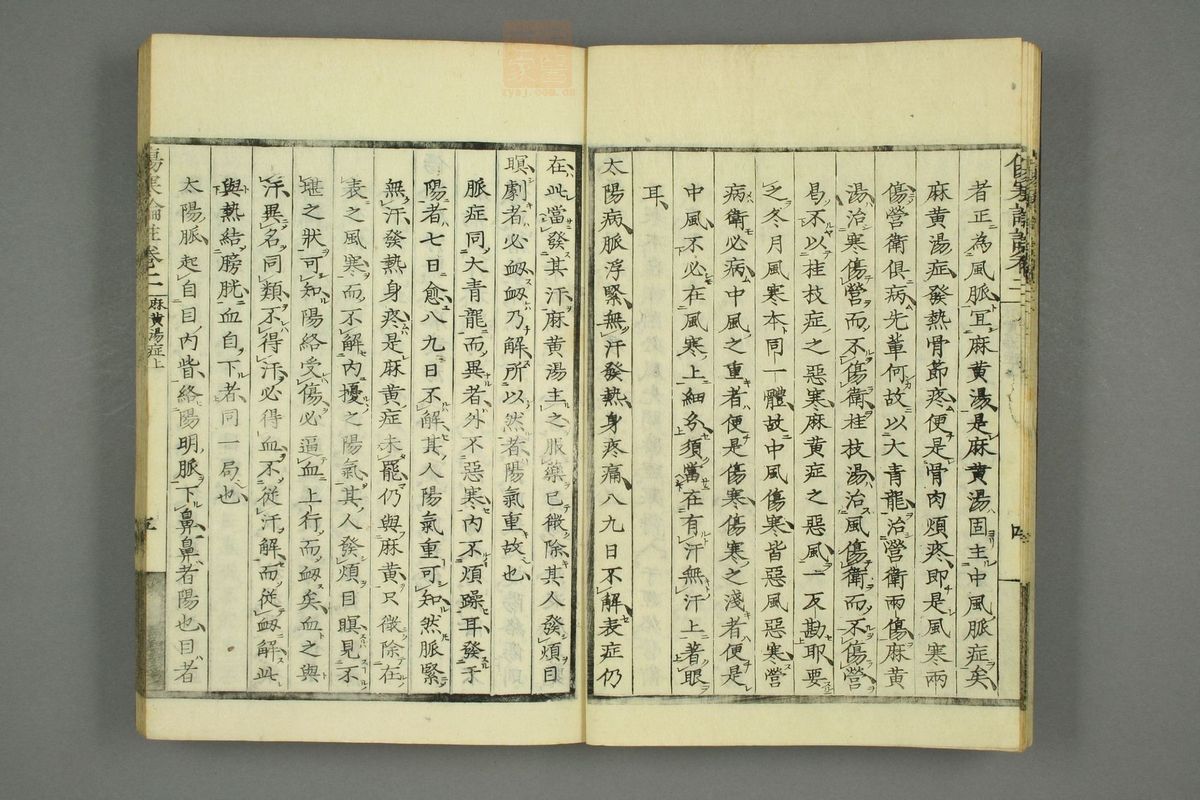 者正為風脈宜麻黄湯是麻黄湯固主中風脈症矣
麻黄湯症發熱骨節疼便是骨肉煩疼即是風寒兩
傷營衛俱病先輩何故以大青龍治營衛兩傷麻黄
湯治寒傷營而不傷衛桂枝湯治風傷衛而不傷營
曷不以桂枝症之惡寒麻黄症之惡風一反勘耶要
之冬月風寒本同一體故中風傷寒皆惡風惡寒營
病衛必病中風之重者便是傷寒傷寒之淺者便是
中風不必在風寒上細分須當在有汗無汗上著眼
耳
太陽病脈浮緊無汗發熱身疼痛八九日不解表症仍
在此當發其汗麻黄湯主之服藥已微除其人發煩目
瞑劇者必衂衂乃解所以然者陽氣重故也
脈症同大青龍而異者外不惡寒内不煩躁耳發于
陽者七日愈八九日不解其人陽氣重可知然脈緊
無汗發熱身疼是麻黄症未罷仍與麻黄只微除在
表之風寒而不解内擾之陽氣其人發煩目瞑見不
堪之狀可知陽絡受傷必逼血上行而衂矣血之與
汗異名同類不得汗必得血不從汗解而從衂解此
與熱結膀胱血自下者同一局也
太陽脈起自目内眥絡陽明脈下鼻鼻者陽也目者
傷寒論註卷二 麻黄湯症上